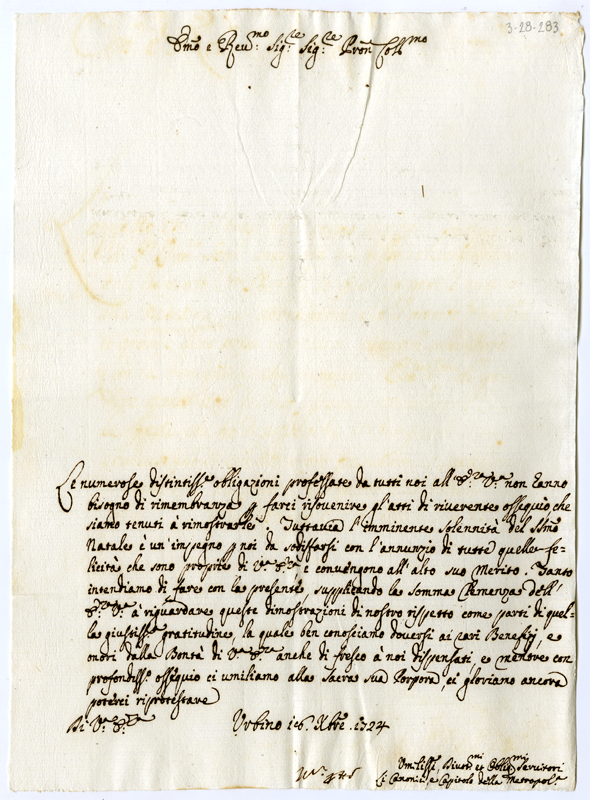 3-28-283
Emo e Reu:mo Sig:re Sig:re Pron Collmo
Le numerose distintisse obligazioni professate da tutti noi all' Em:za V:ra non hanno
bisogno di rimembranza p farci risovenire gl'atti di riverente ossequio che
siamo tenuti à rimostrarle. Tuttavia l'imminente solennità del SSmo
Natale è un' impegno p noi da sodisfarsi con l'annunzio di tutte quelle fe-
licità che sono proprie di V:ra Em:za e convengono all' alto suo Merito. Tanto
intendiamo di fare con la presente, supplicando la somma Clemenza dell'
Em:za V:ra à riguardare queste dimostrazioni di nostro rispetto come parti di quel-
la giustissa gratitudine, la quale ben conosciamo doversi ai rari Benefizj, e
onori dalla Bontà di V:ra Em:za anche di fresco à noi dispensati, e mentre con
profondisso ossequio ci umiliamo alla Sacra sua Porpora, ci gloriamo ancora
poterci riprotestare
Di V:ra Em:za
Urbino 16. Xbre 1724
Umilissi, Divotmi et Obligmi Servitori
Li Canonici e Capitolo della Metropol:a